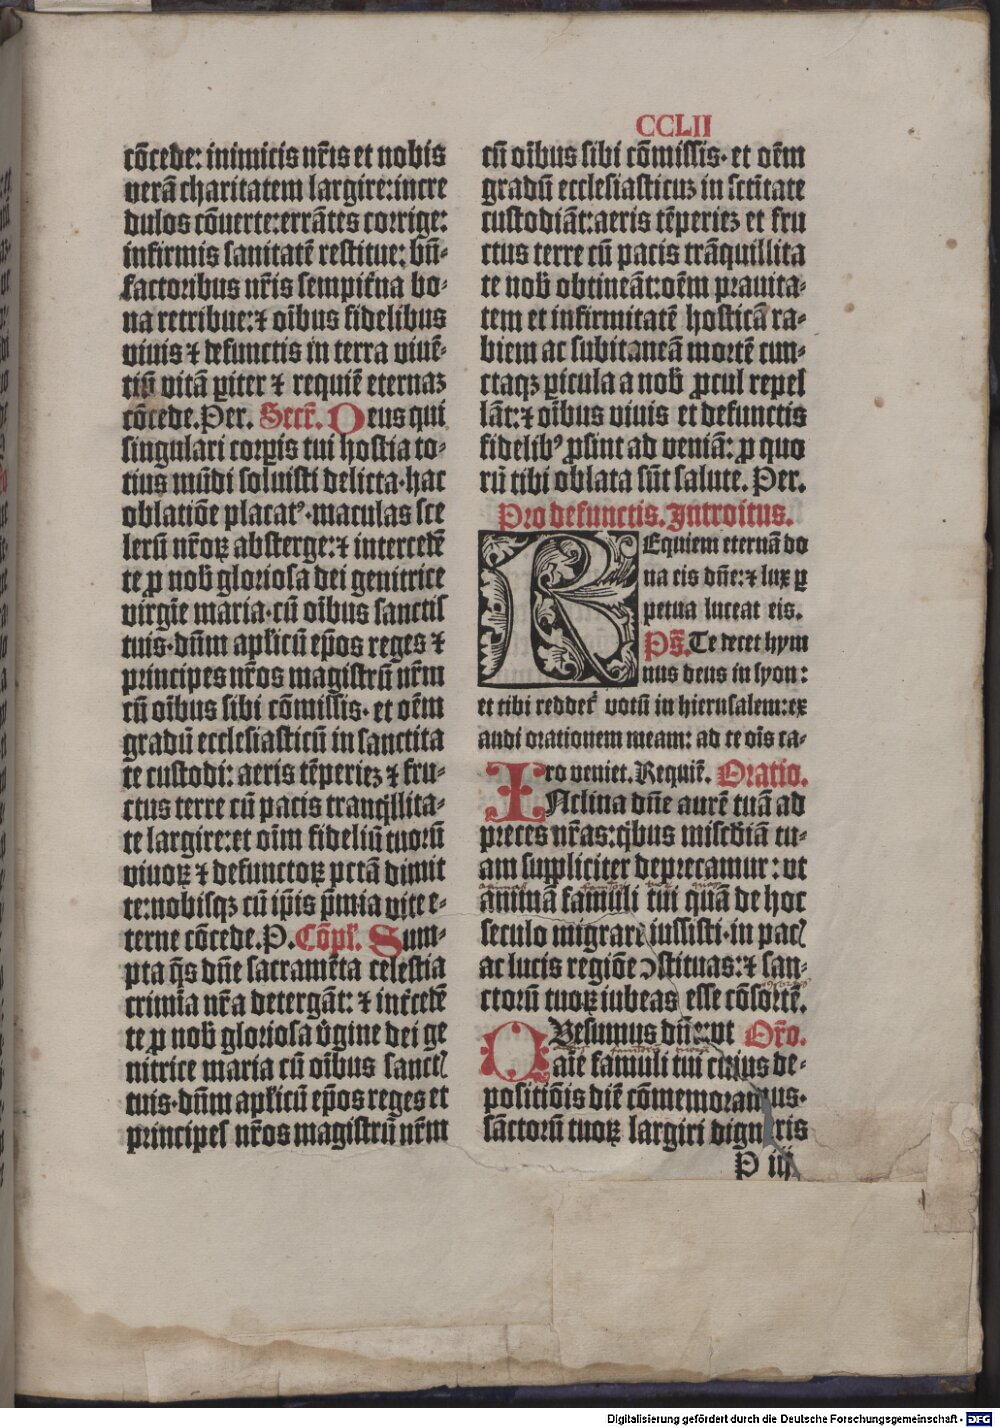 CCLII
cōcede: inimicis nr̄is et nobis
verā charitatem largire: incre
dulos cōuerte: errātes corrige:
infirmis sanitatē restitue: bn̄-
factoribus nr̄is sempit̄na bo-
na retribue: ⁊ oībus fidelibus
viuis ⁊ defunctis in terra viuē-
tiū vitā ꝑiter ⁊ requiē eternaꝫ
cōcede. Per. Secr̄. Deus qui
singulari corꝑis tui hostia to-
tius mūdi soluisti delicta. hac
oblatiōe placatꝰ. maculas sce
lerū nr̄oꝝ absterge: ⁊ intercedē
te ꝓ nob̄ gloriosa dei genitrice
virgīe maria. cū oībus sanctis
tuis. dūm apl̄icū ep̄os reges ⁊
principes nr̄os magistrū nr̄m
cū oībus sibi cōmissis. et oēm
gradū ecclesiasticū in sanctita
te custodi: aeris tēperieꝫ ⁊ fru-
ctus terre cū pacis tranqͥllita-
te largire: et oīm fideliū tuorū
viuoꝝ ⁊ defunctoꝝ pctā dimit
te: nobisqꝫ cū ip̄is p̄mia vite e-
terne cōcede. P. Cōpl̄. Sum-
pta q̄s dn̄e sacramēta celestia
crimīa nr̄a detergāt: ⁊ int̄cedē
te ꝓ nob̄ gloriosa v̄gine dei ge
nitrice maria cū oībus sanctꝭ
tuis. dūm apl̄icū ep̄os reges et
principes nr̄os magistrū nr̄m
cū oībus sibi cōmissis. et oēm
gradū ecclesiasticuꝫ in sctītate
custodiāt: aeris tēperieꝫ et fru
ctus terre cū pacis trāquillita
te nob̄ obtineāt: oēm prauita-
tem et infirmitatē hosticā ra-
biem ac subitaneā mortē cun-
ctaqꝫ ꝑicula a nob̄ ꝓcul repel
lāt: ⁊ oībus viuis et defunctis
fidelibꝰ ꝓsint ad veniā: ꝓ quo
rū tibi oblata sūt salute. Per.
Pro defunctis. Introitus.
REquiem eternā do
na eis dn̄e: ⁊ lux ꝑ
petua luceat eis.
Ps̄. Te decet hym
nus deus in syon:
et tibi reddet̄ votū in hierusalem: ex
audi orationem meam: ad te oīs ca-
ro veniet. Requiē. Oratio.
INclina dn̄e aurē tuā ad
preces nr̄as: qͥbus mis̄cdiā tu-
am suppliciter deprecamur: vt
animā famuli tui quā de hoc
seculo migrare iussisti. in pacꝭ
ac lucis regiōe ↄstituas: ⁊ san-
ctorū tuoꝝ iubeas esse cōsortē.
QVesumus dn̄e: vt Or̄o.
aīe famuli tui cuius de-
positiōis diē cōmemoramus.
sāctorū tuoꝝ largiri digneris
P iij